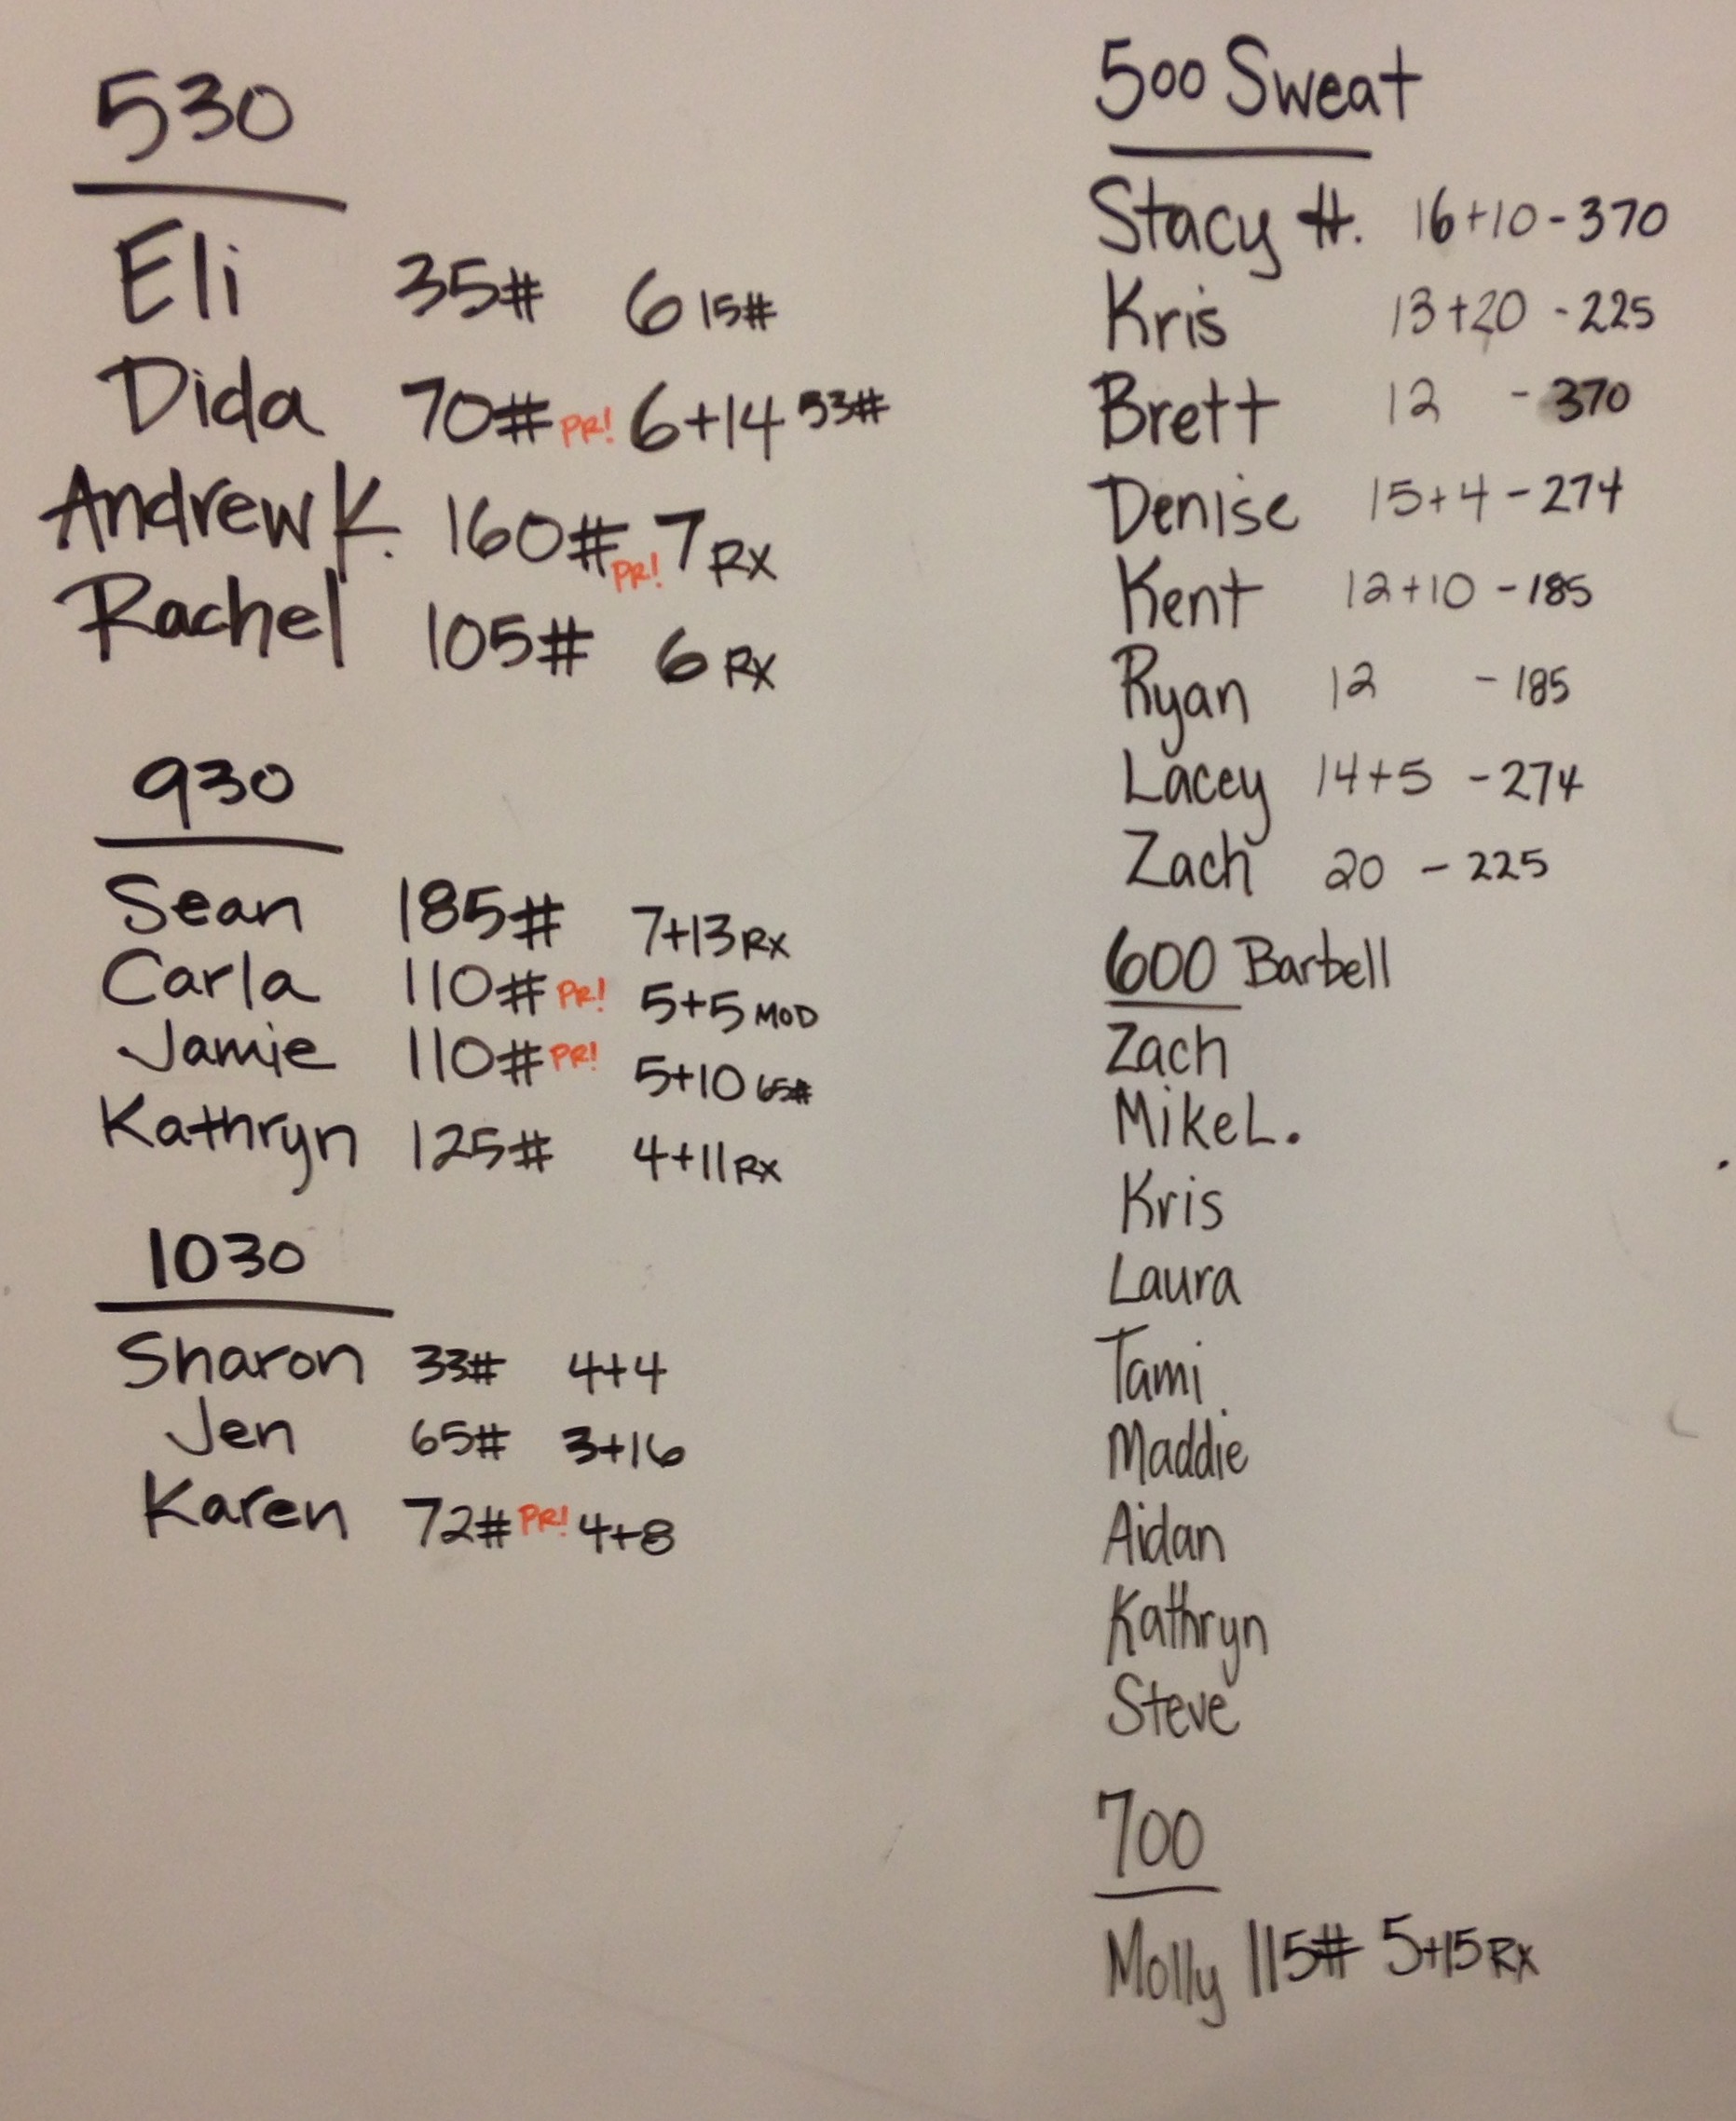 530
Eli 35# 6 15#
Dida 70# PR! 6+14 53#
Andrew K. 160# PR! 7 RX
Rachel 105# 6 RX
930
Sean 185# 7+13 RX
Carla 110# PR! 5+5 MOD
Jamie 110# PR! 5+10 65#
Kathryn 125# 4+11 RX
1030
Sharon 33# 4+4
Jen 65# 3+16
Karen 72# PR! 4+8
500 Sweat
Stacy H. 16+10 - 370
Kris 13+20 - 225
Brett 12 - 370
Denise 15+4 - 274
Kent 12+10 - 185
Ryan 12 - 185
Lacey 14+5 - 274
Zach 20 - 225
600 Barbell
Zach
Mike L.
Kris
Laura
Tami
Maddie
Aidan
Kathryn
Steve
700
Molly 115# 5+15 RX